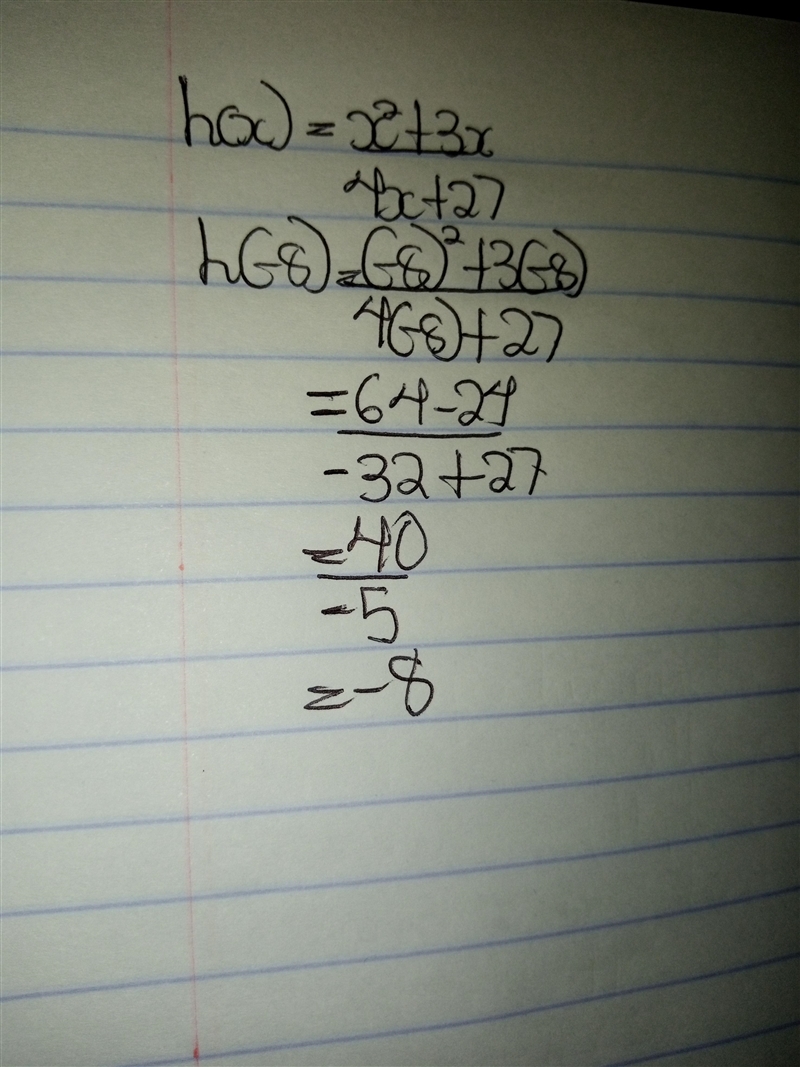 h(x) = x²+3x
4x+27
h(-8) = (-8)²+3(-8)
4(-8)+27
=64-24
-32+27
=40
-5
=-8